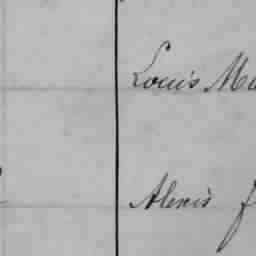 Louis Ma
Alexis f